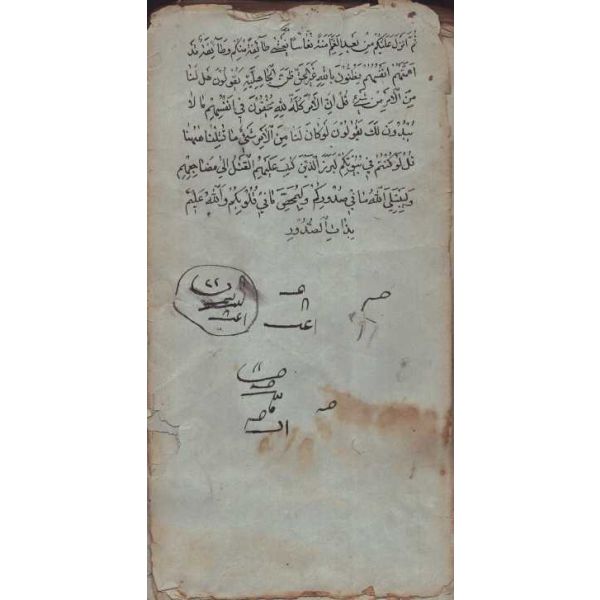 ثُمَّ أَنْزَلَ عَلَيْكُمْ مِنْ بَعْدِ الْغَمِّ أَمَنَةً نُعَاسًا يَغْشَى طَائِفَةً مِنْكُمْ وَطَائِفَةٌ قَدْ
أَهَمَّتْهُمْ أَنْفُسُهُمْ يَظُنُّونَ بِاللَّهِ غَيْرَ الْحَقِّ ظَنَّ الْجَاهِلِيَّةِ يَقُولُونَ هَلْ لَنَا
مِنَ الْأَمْرِ مِنْ شَيْءٍ قُلْ إِنَّ الْأَمْرَ كُلَّهُ لِلَّهِ يُخْفُونَ فِي أَنْفُسِهِمْ مَا لَا
يُبْدُونَ لَكَ يَقُولُونَ لَوْ كَانَ لَنَا مِنَ الْأَمْرِ شَيْءٌ مَا قُتِلْنَا هَهُنَا
قُلْ لَوْ كُنْتُمْ فِي بُيُوتِكُمْ لَبَرَزَ الَّذِينَ كُتِبَ عَلَيْهِمُ الْقَتْلُ إِلَى مَضَاجِعِهِمْ
وَلِيَبْتَلِيَ اللَّهُ مَا فِي صُدُورِكُمْ وَلِيُمَحِّصَ مَا فِي قُلُوبِكُمْ وَاللَّهُ عَلِيمٌ
بِذَاتِ الصُّدُورِ
٢٢